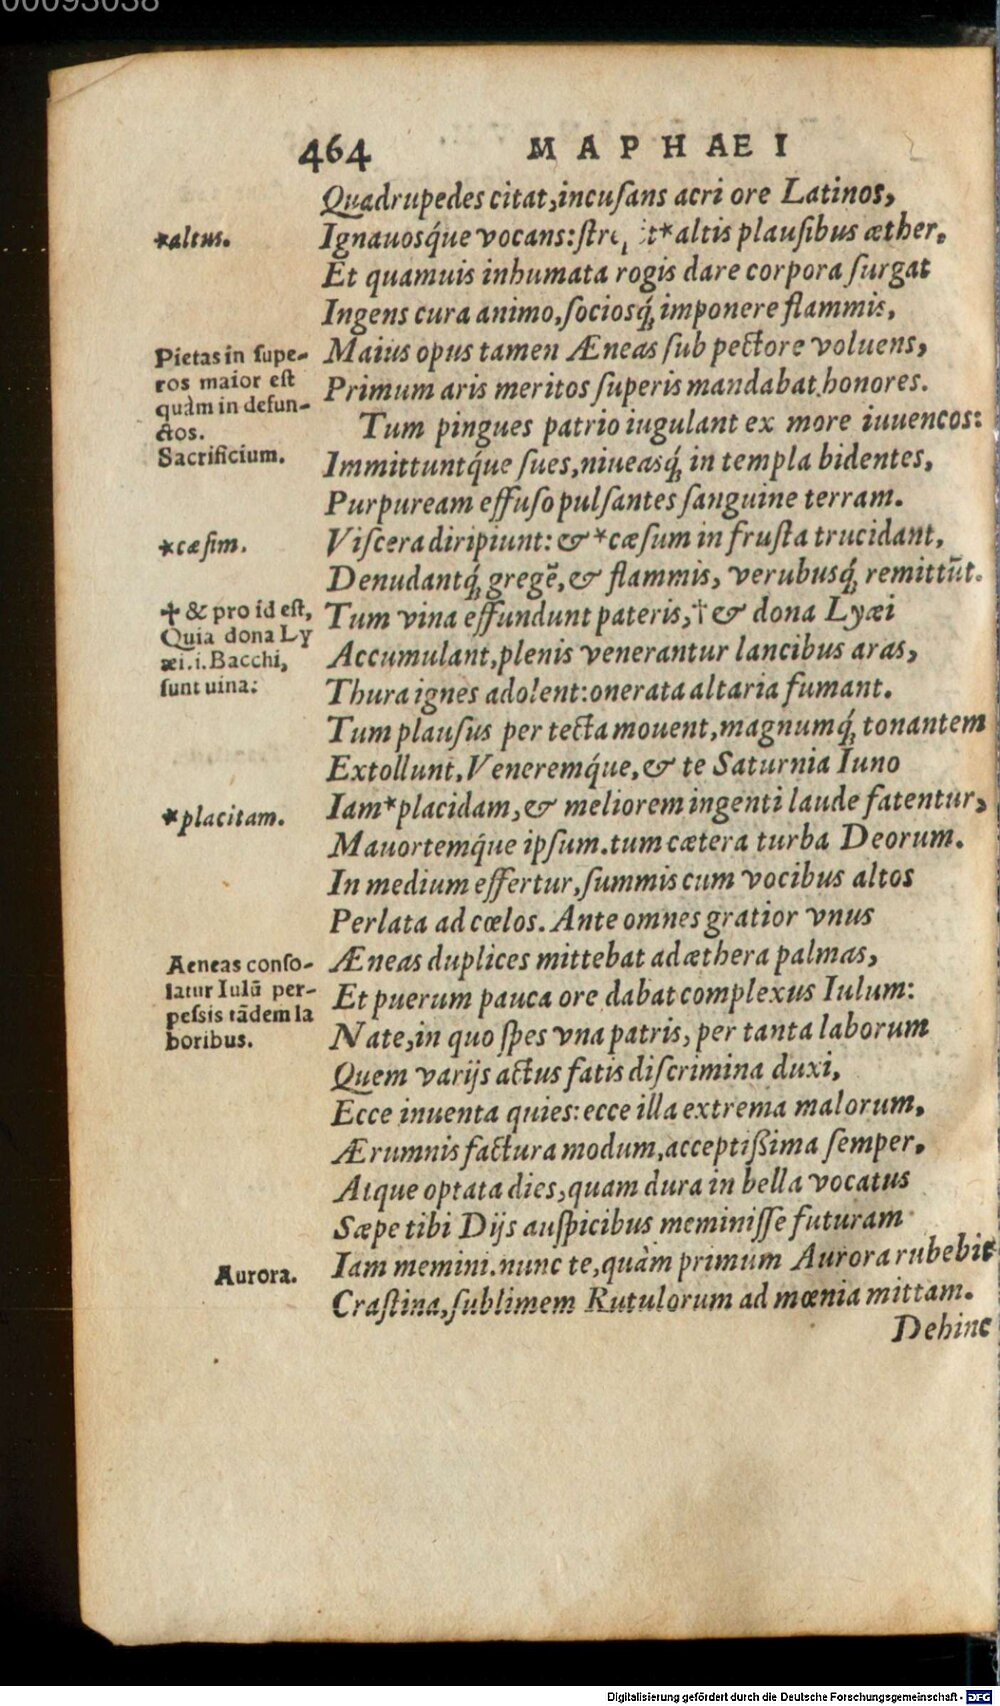 00093038
464 MAPHAEI
Quadrupedes citat,incuſans acri ore Latinos,
*altus.
Ignauosq́ue vocans: *altis plauſibus æther,
Et quamuis inhumata rogis dare corpora ſurgat
Ingens cura animo,ſociosq́; imponere flammis,
Pietas in ſupe-
ros maior eſt
quàm in defun-
ctos.
Sacrificium.
Maius opus tamen Æneas ſub pectore voluens,
Primum aris meritos ſuperis mandabat honores.
Tum pingues patrio iugulant ex more iuuencos:
Immittuntq́ue ſues,niueasq́; in templa bidentes,
Purpuream effuſo pulſantes ſanguine terram.
*cæſim.
Viſcera diripiunt: & *cæſum in fruſta trucidant,
Denudantq́; gregē,& flammis, verubusq́; remittūt.
✝ & pro id eſt,
Quia dona Ly
æi.i.Bacchi,
ſunt uina:
Tum vina effundunt pateris,† & dona Lyæi
Accumulant,plenis venerantur lancibus aras,
Thura ignes adolent:onerata altaria fumant.
Tum plauſus per tecta mouent,magnumq́; tonantem
Extollunt,Veneremq́ue,& te Saturnia Iuno
*placitam.
Iam *placidam,& meliorem ingenti laude fatentur,
Mauortemq́ue ipſum.tum cætera turba Deorum.
In medium effertur,ſummis cum vocibus altos
Perlata ad cœlos. Ante omnes gratior vnus
Aeneas conſo-
latur Iulū per-
peſsis tādem la
boribus.
Æneas duplices mittebat ad æthera palmas,
Et puerum pauca ore dabat complexus Iulum:
Nate,in quo ſpes vna patris, per tanta laborum
Quem varijs actus fatis diſcrimina duxi,
Ecce inuenta quies:ecce illa extrema malorum,
Ærumnis factura modum,acceptißima ſemper,
Atque optata dies,quam dura in bella vocatus
Sæpe tibi Dijs auſpicibus meminiſſe futuram
Aurora.
Iam memini.nunc te,quàm primum Aurora rubebit
Craſtina,ſublimem Rutulorum ad mœnia mittam.
Dehinc
Digitalisierung gefördert durch die Deutsche Forschungsgemeinschaft - DFG